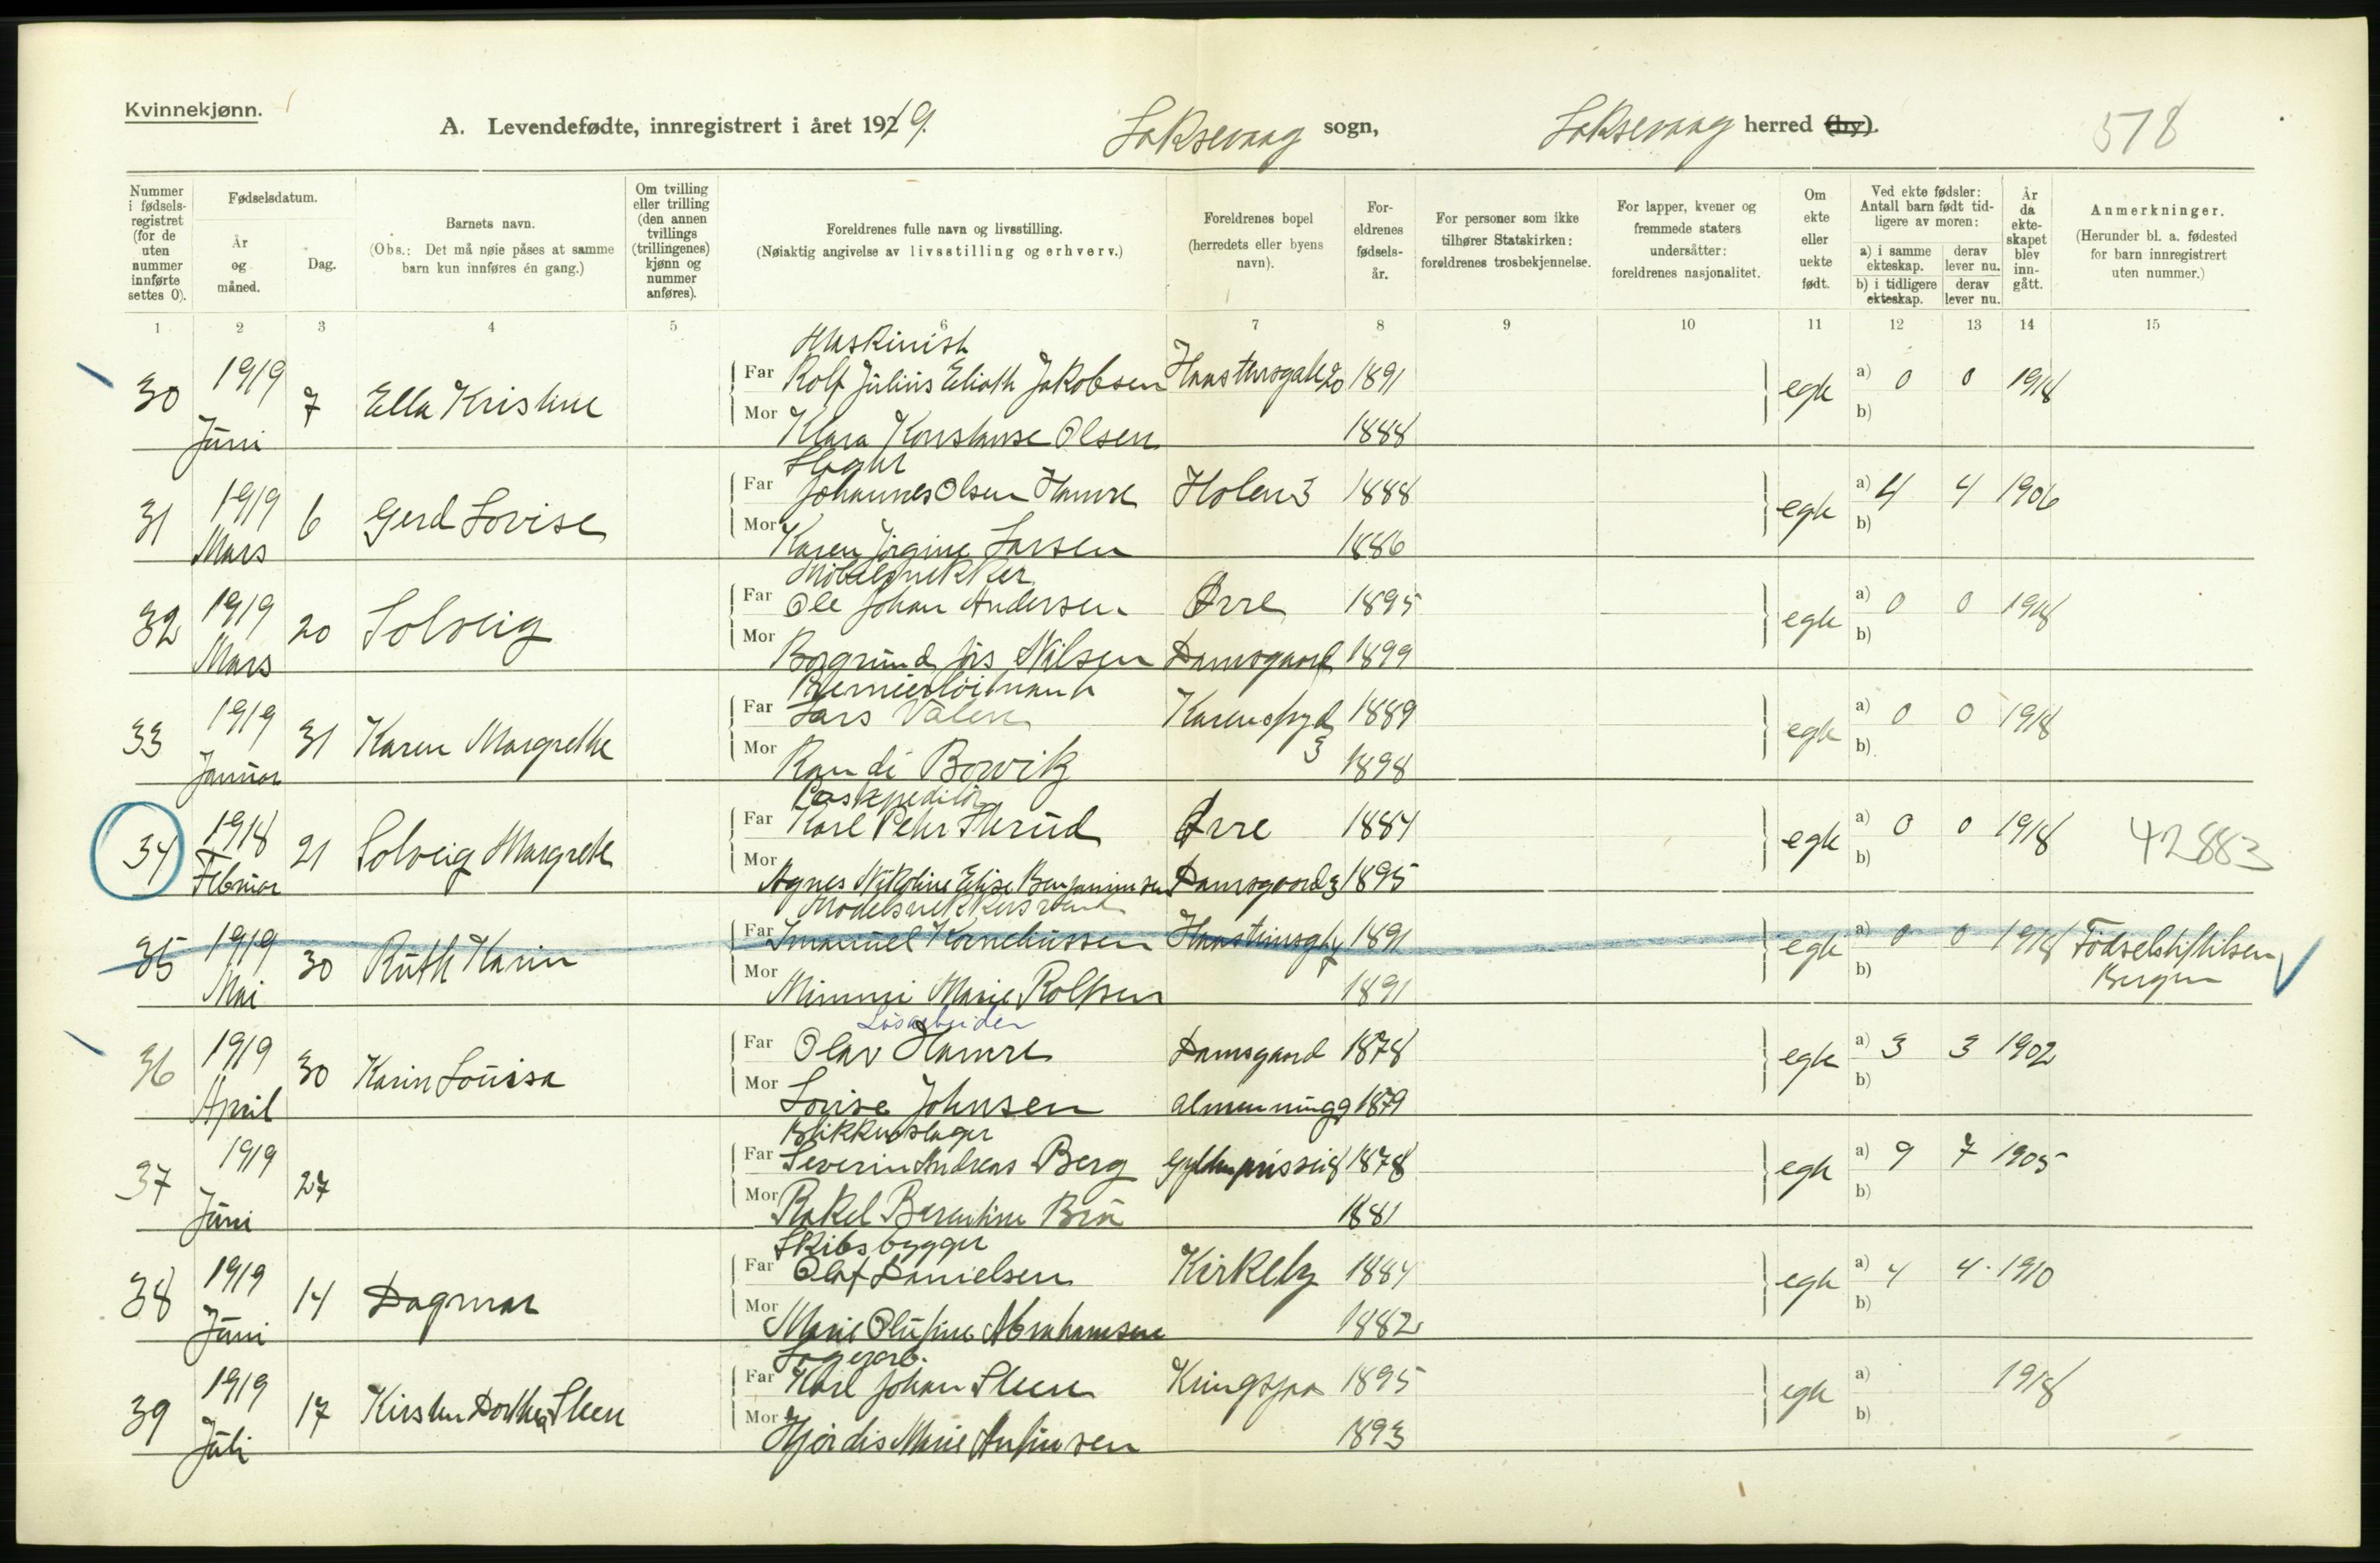 Kvinnekjønn.
A. Levendefødte, innregistrert i året 1919. Laksevaag sogn, Laksevaag herred (by). 578
Nummer i fødsels-registret (for de uten nummer innførte settes 0).
Fødselsdatum.
År og måned.
Dag.
Barnets navn.
(Obs.: Det må nøie påses at samme barn kun innføres én gang.)
Om tvilling eller trilling (den annen tvillings (trillingenes) kjønn og nummer anføres).
Foreldrenes fulle navn og livsstilling.
(Nøiaktig angivelse av livsstilling og erhverv.)
Foreldrenes bopel (herredets eller byens navn).
For-eldrenes fødsels-år.
For personer som ikke tilhører Statskirken: foreldrenes trosbekjennelse.
For lapper, kvener og fremmede staters undersåtter: foreldrenes nasjonalitet.
Om ekte eller uekte født.
Ved ekte fødsler: Antall barn født tid-ligere av moren:
a) i samme ekteskap. derav lever nu.
b) i tidligere ekteskap. derav lever nu.
År da ekte-skapet blev inn-gått.
Anmerkninger.
(Herunder bl. a. fødested for barn innregistrert uten nummer.)
1 2 3 4 5 6 7 8 9 10 11 12 13 14 15
Maskinist
30 1919 7 Ella Kristine Far Rolf Julius Eliath Jakobsen 20 1891 egte a) 0 0 1918
Juni Mor Klara Konstanse Olsen 1888 b)
Slagter
31 1919 6 Gerd Lovise Far Johannes Olsen Hamre Holen 3 1888 egte a) 4 4 1906
Mars Mor Karen Jørgine Larsen 1886 b)
Møbelsnekker
32 1919 20 Solveig Far Ole Johan Andersen Øvre 1895 egte a) 0 0 1918
Mars Mor Nilsen Damsgaard 1899 b)
Premierløitnant
33 1919 31 Karen Margrethe Far Lars Valen 3 1889 egte a) 0 0 1918
Januar Mor Randi Borvik 1898 b)
34 1918 21 Solveig Margrete Far Karl Peter Øvre 1884 egte a) 0 0 1918 42883
Februar Mor Agnes Nikoline Elise Benjaminsen Damsgaard 3 1895 b)
35 1919 30 Ruth Karin Far Imanuel Korneliussen 1891 egte a) 0 0 1918 Fødselstiftelsen
Mai Mor Mimmi Marie Rolfsen 1891 b) Bergen
Løsarbeider
36 1919 30 Karin Louisa Far Olav Hamre Damsgaard 1878 egte a) 3 3 1902
April Mor Lovise Johnsen almenning 9 1879 b)
Blikkenslager
37 1919 27 Far Severin Andreas Berg 1878 egte a) 9 7 1905
Juni Mor Rakel Berentine 1881 b)
Skibsbygger
38 1919 14 Dagmar Far Olaf Danielsen Kirkeby 1884 egte a) 4 4 1910
Juni Mor Marie Olufine Abrahamsen 1882 b)
Lagerarb.
39 1919 17 Kirsten Dorthea Steen Far Karl Johan Steen Kringsjaa 1895 egte a) 1918
Juli Mor Hjørdis Marie Anfinsen 1893 b)